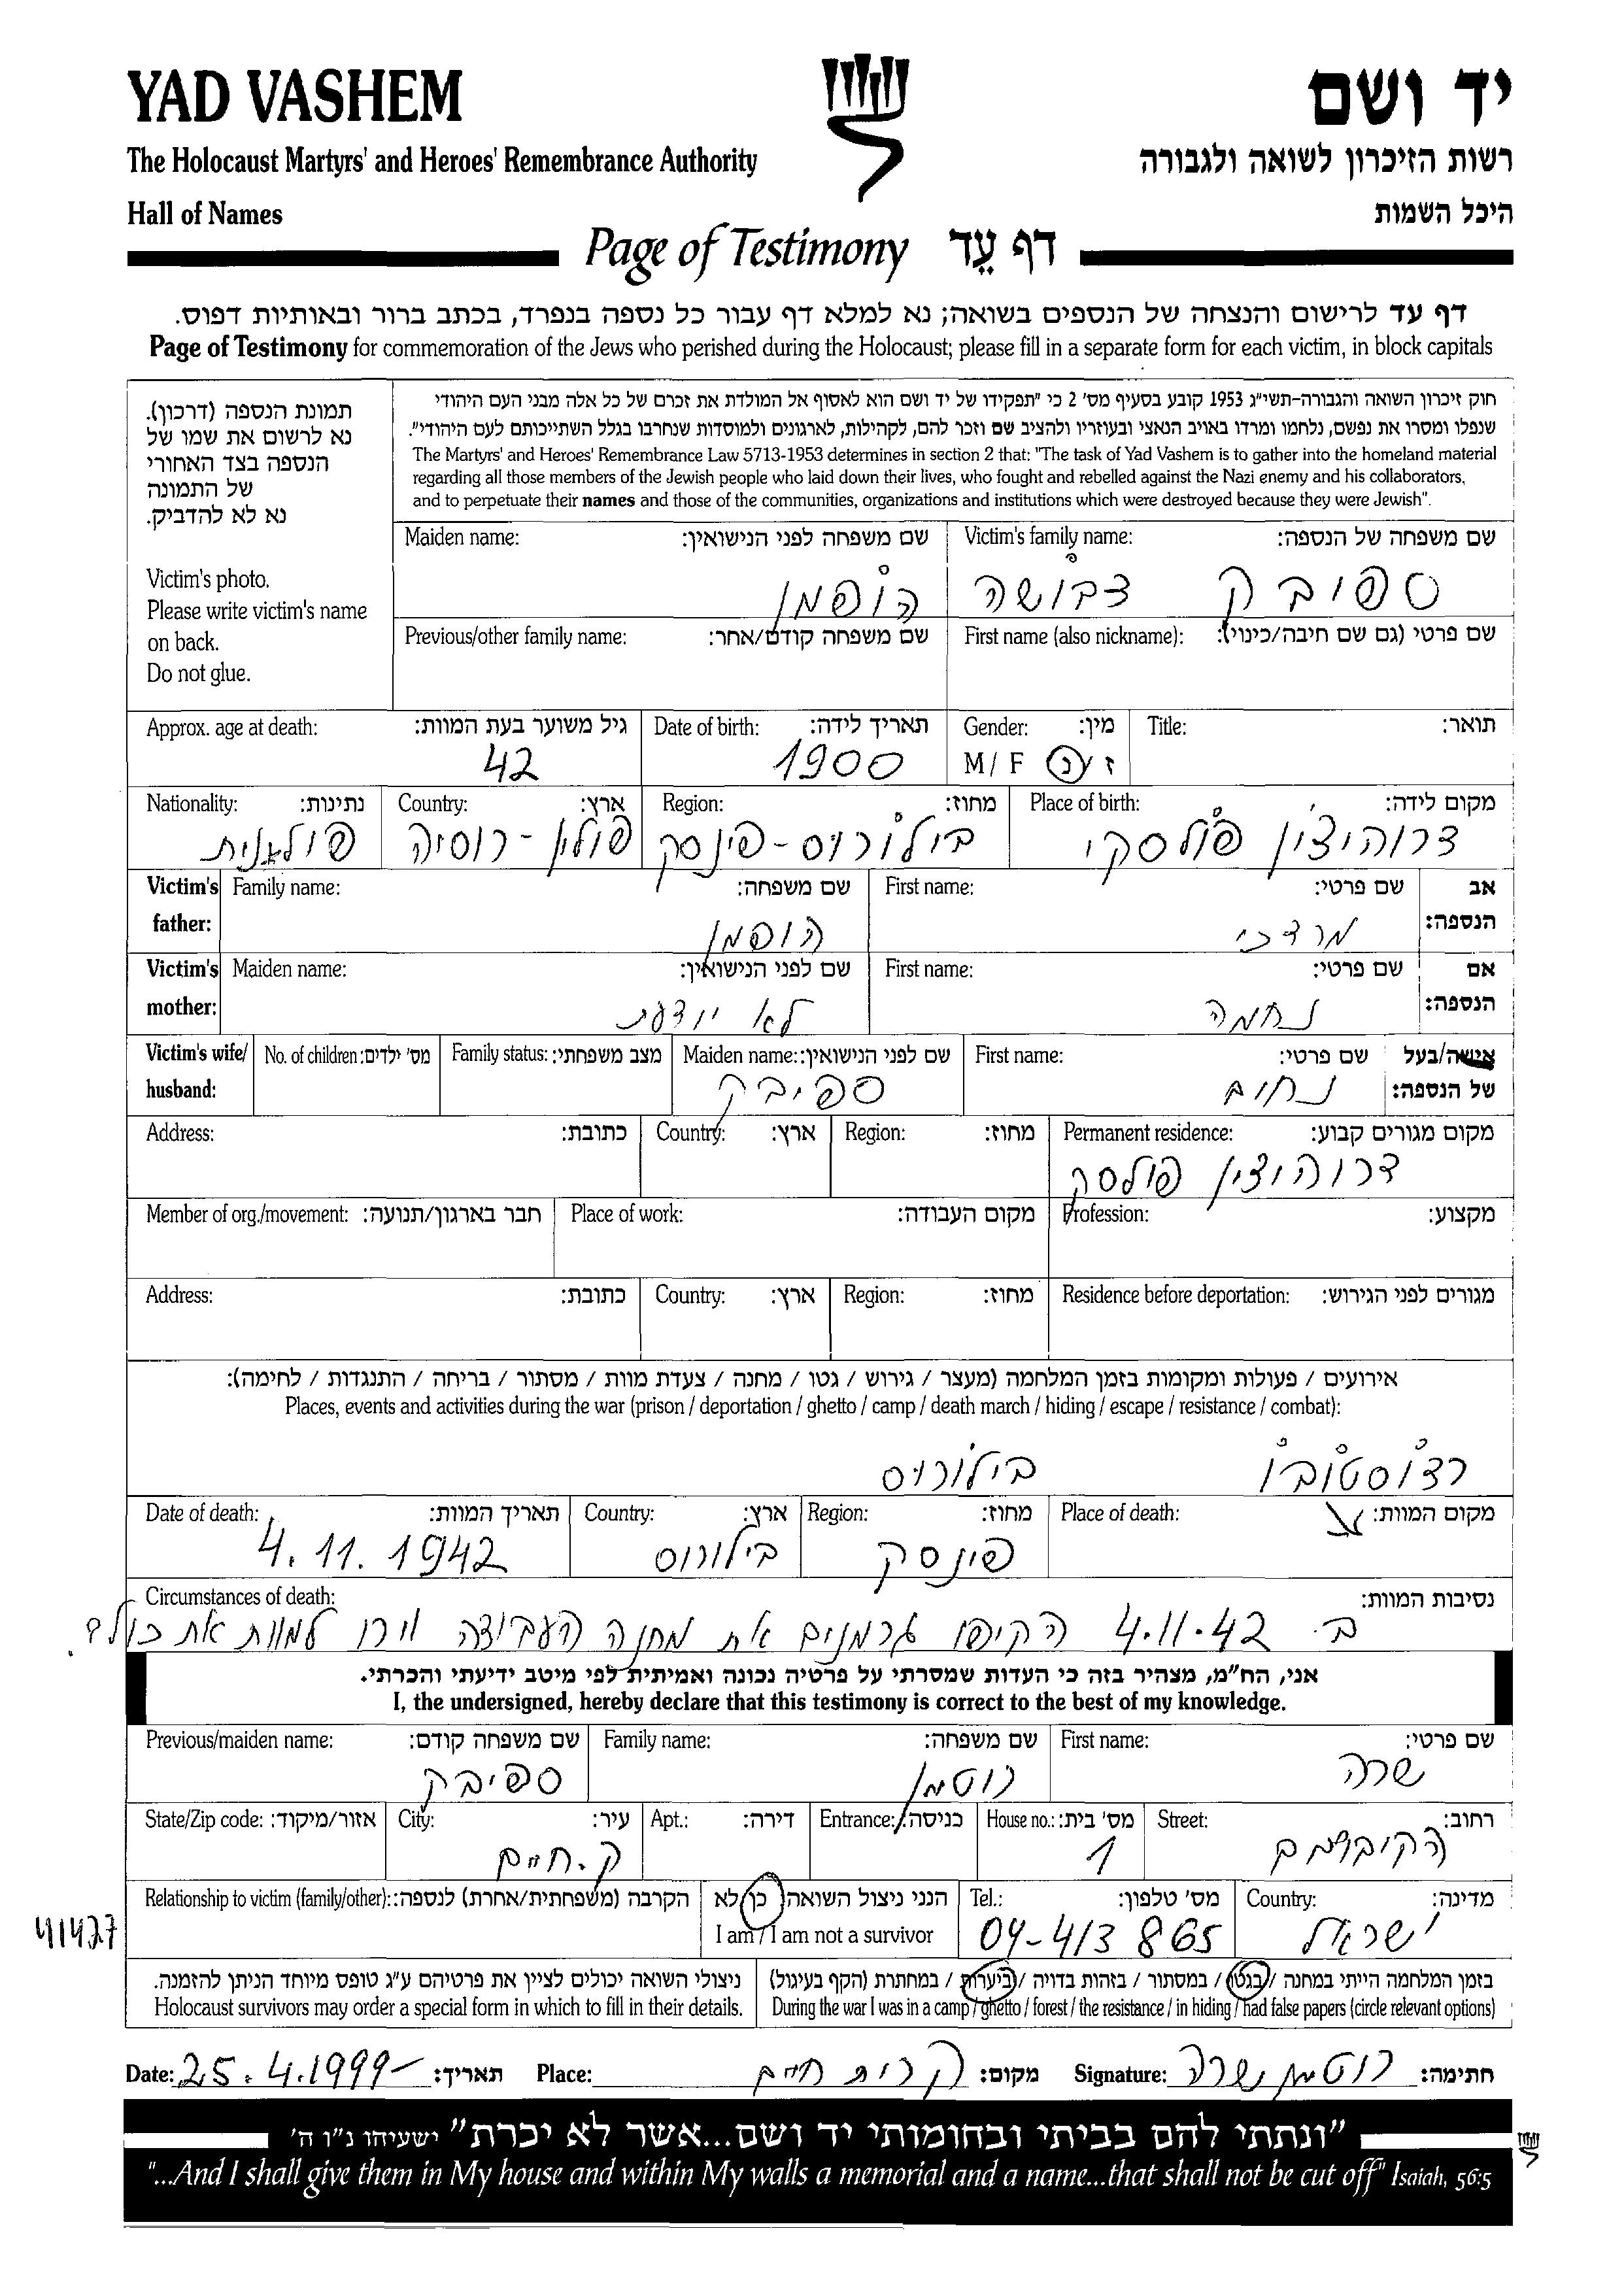 YAD VASHEM
יד ושם
The Holocaust Martyrs' and Heroes' Remembrance Authority
רשות הזיכרון לשואה ולגבורה
Hall of Names
היכל השמות
Page of Testimony דף עֵד
דף עד לרישום והנצחה של הנספים בשואה; נא למלא דף עבור כל נספה בנפרד, בכתב ברור ובאותיות דפוס.
Page of Testimony for commemoration of the Jews who perished during the Holocaust; please fill in a separate form for each victim, in block capitals
תמונת הנספה (דרכון).
נא לרשום את שמו של
הנספה בצד האחורי
של התמונה
נא לא להדביק.
Victim's photo.
Please write victim's name
on back.
Do not glue.
חוק זיכרון השואה והגבורה-תשי"ג 1953 קובע בסעיף מס' 2 כי "תפקידו של יד ושם הוא לאסוף אל המולדת את זכרם של כל אלה מבני העם היהודי
שנפלו ומסרו את נפשם, נלחמו ומרדו באויב הנאצי ובעוזריו ולהציב שם וזכר להם, לקהילות, לארגונים ולמוסדות שנחרבו בגלל השתייכותם לעם היהודי".
The Martyrs' and Heroes' Remembrance Law 5713-1953 determines in section 2 that: "The task of Yad Vashem is to gather into the homeland material
regarding all those members of the Jewish people who laid down their lives, who fought and rebelled against the Nazi enemy and his collaborators,
and to perpetuate their names and those of the communities, organizations and institutions which were destroyed because they were Jewish".
Victim's family name: שם משפחה של הנספה:
ספיבק
Maiden name: שם משפחה לפני הנישואין:
הופמן
First name (also nickname): שם פרטי (גם שם חיבה/כינוי):
Previous/other family name: שם משפחה קודם/אחר:
Title: תואר:
Gender: מין:
M / F ז / נ
Date of birth: תאריך לידה:
1900
Approx. age at death: גיל משוער בעת המוות:
42
Place of birth: מקום לידה:
דרוהיצין פולסקי
Region: מחוז:
בילורוס-פינסק
Country: ארץ:
פולין-רוסיה
Nationality: נתינות:
פולאנית
Victim's father: אב הנספה:
First name: שם פרטי:
מרדכי
Family name: שם משפחה:
הופמן
Victim's mother: אם הנספה:
First name: שם פרטי:
נחמה
Maiden name: שם לפני הנישואין:
לא יודעת
Victim's wife/ husband: אישה/בעל של הנספה:
First name: שם פרטי:
נחום
Maiden name: שם לפני הנישואין:
ספיבק
Family status: מצב משפחתי:
No. of children: מס' ילדים:
Permanent residence: מקום מגורים קבוע:
דרוהיצין פולסק
Region: מחוז:
Country: ארץ:
Address: כתובת:
Profession: מקצוע:
Place of work: מקום העבודה:
Member of org./movement: חבר בארגון/תנועה:
Residence before deportation: מגורים לפני הגירוש:
Region: מחוז:
Country: ארץ:
Address: כתובת:
אירועים / פעולות ומקומות בזמן המלחמה (מעצר / גירוש / גטו / מחנה / צעדת מוות / מסתור / בריחה / התנגדות / לחימה):
Places, events and activities during the war (prison / deportation / ghetto / camp / death march / hiding / escape / resistance / combat):
בילורוס
Place of death: מקום המוות:
Region: מחוז:
פינסק
Country: ארץ:
בילורוס
Date of death: תאריך המוות:
4.11.1942
Circumstances of death: נסיבות המוות:
ב. 4.11.42 הקיפו גרמנים את מחנה העבודה וירו למוות את כולם.
אני, הח"מ, מצהיר בזה כי העדות שמסרתי על פרטיה נכונה ואמיתית לפי מיטב ידיעתי והכרתי.
I, the undersigned, hereby declare that this testimony is correct to the best of my knowledge.
First name: שם פרטי:
שרה
Family name: שם משפחה:
רוטמן
Previous/maiden name: שם משפחה קודם:
ספיבק
Street: רחוב:
House no.: מס' בית:
1
Entrance: כניסה:
Apt.: דירה:
City: עיר:
ק.חיים
State/Zip code: אזור/מיקוד:
Country: מדינה:
ישראל
Tel.: מס' טלפון:
04-413865
הנני ניצול השואה: כן לא
I am / I am not a survivor
Relationship to victim (family/other): הקרבה (משפחתית/אחרת) לנספה:
41427
בזמן המלחמה הייתי במחנה / בגטו / במסתור / בזהות בדויה / ביערות / במחתרת (הקף בעיגול)
During the war I was in a camp / ghetto / forest / the resistance / in hiding / had false papers (circle relevant options)
ניצולי השואה יכולים לציין את פרטיהם ע"ג טופס מיוחד הניתן להזמנה.
Holocaust survivors may order a special form in which to fill in their details.
Date: 25.4.1999- תאריך: Place: קרית חיים מקום: Signature: רוטמן שרה חתימה:
"ונתתי להם בביתי ובחומותי יד ושם...אשר לא יכרת" ישעיהו נ"ו ה'
"...And I shall give them in My house and within My walls a memorial and a name...that shall not be cut off" Isaiah, 56:5